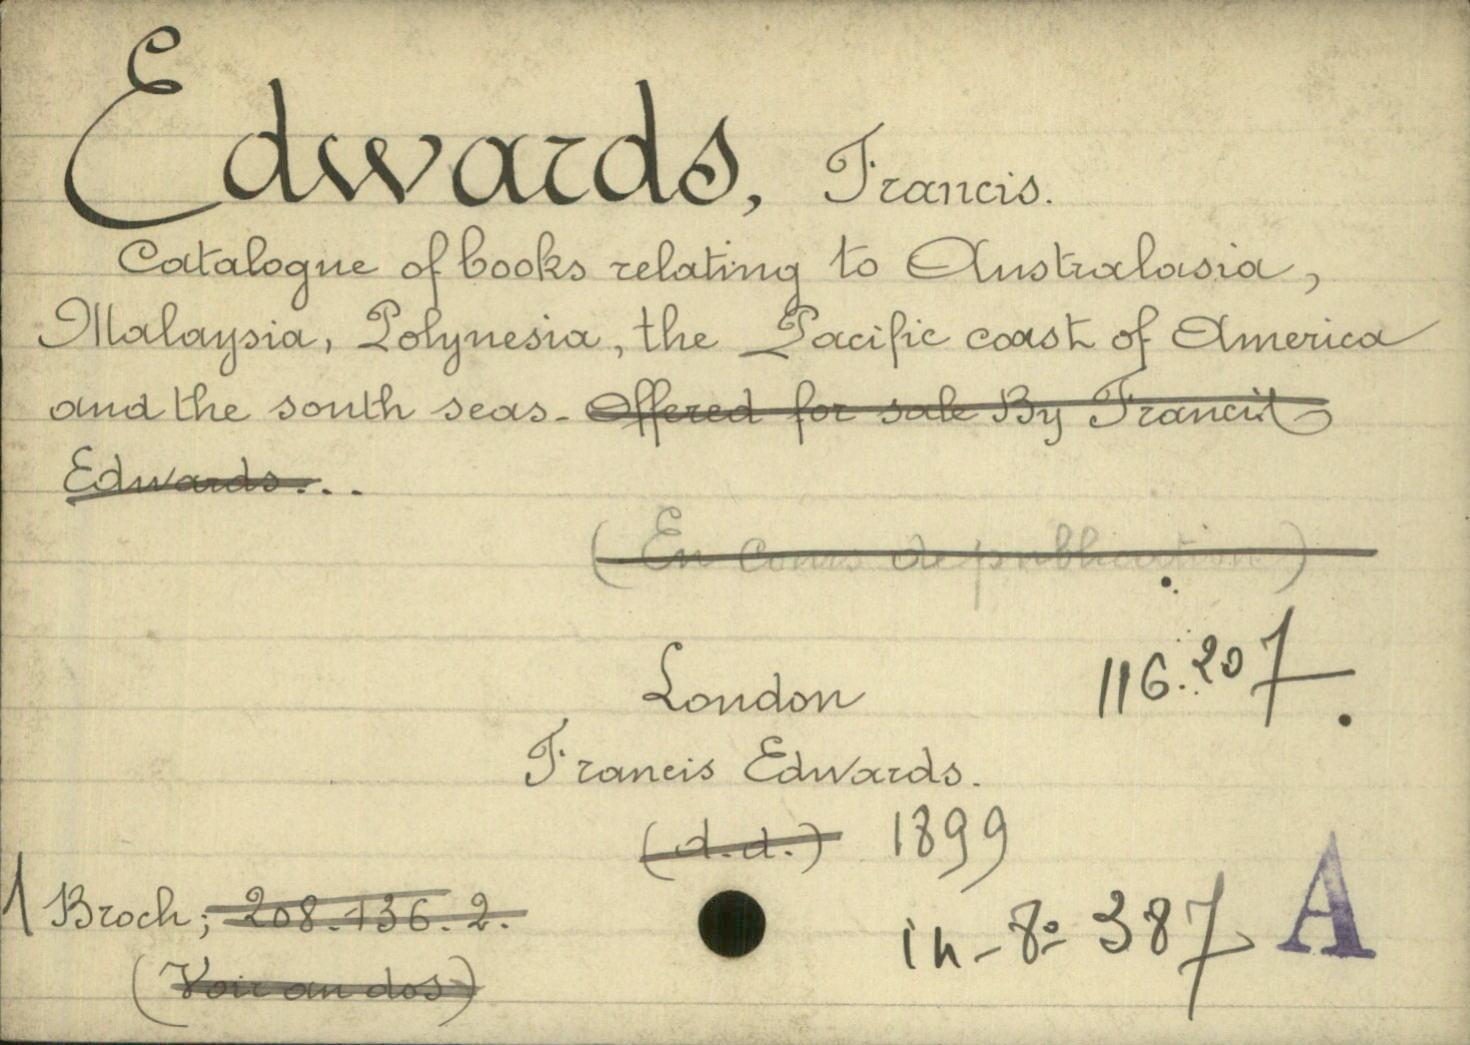 Edwards, Francis.
Catalogue of books relating to Australasia,
Malaysia, Polynesia, the Pacific coast of America
and the south seas. Offered for sale By Francis
Edwards...
(En cours de publication)
London
116.207
Francis Edwards.
(d.d.) 1899
1 Broch; 208.136.2.
in-8º 387 A
(Voir au dos)